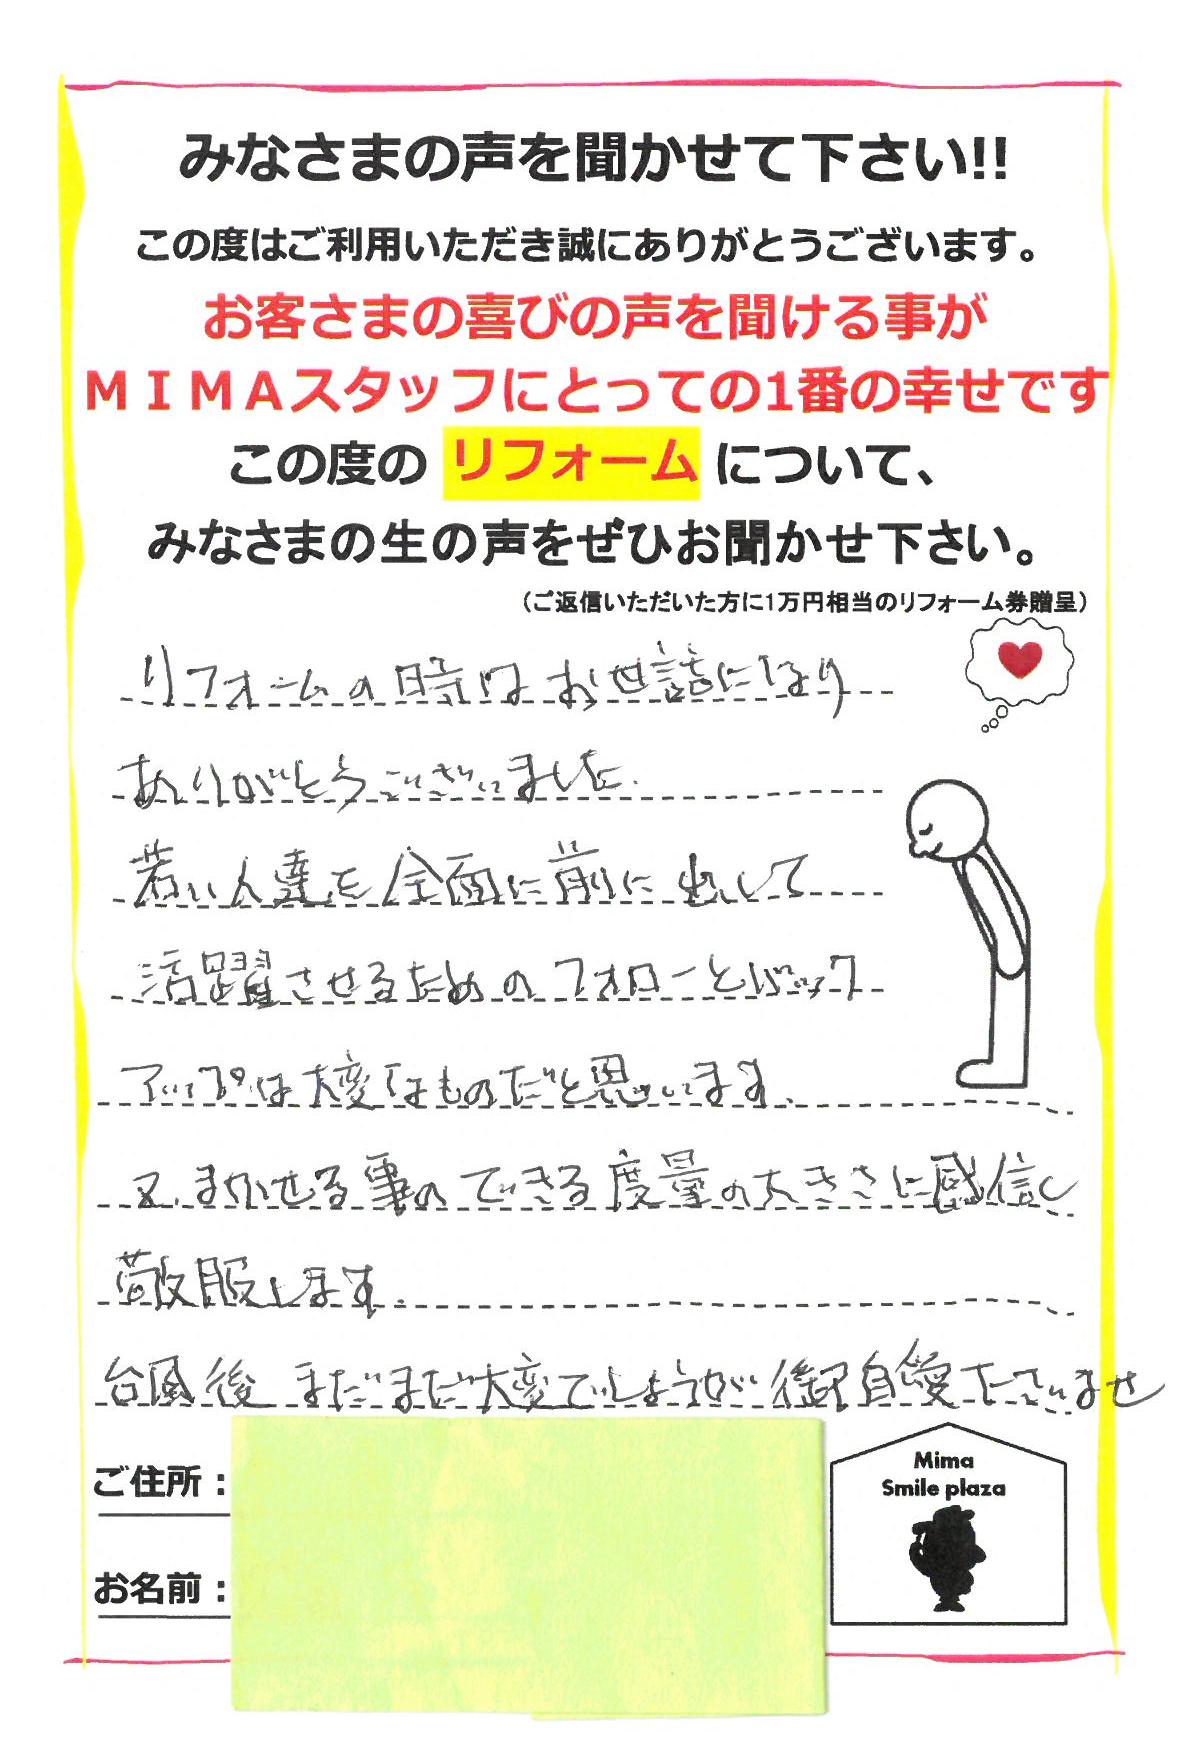 みなさまの声を聞かせて下さい!!
この度はご利用いただき誠にありがとうございます。
お客さまの喜びの声を聞ける事が
ＭＩＭＡスタッフにとっての1番の幸せです
この度の リフォーム について、
みなさまの生の声をぜひお聞かせ下さい。
（ご返信いただいた方に1万円相当のリフォーム券贈呈）
リフォームの時はお世話になり
ありがとうございました.
若い人達を全面に前に出して
活躍させるためのフォローとバック
アップは大変なものだと思います.
又.まかせる事のできる度量の大きさに感信し
敬服します.
台風後 まだまだ大変でしょうが 御自愛下さいませ
ご住所：
お名前：
Mima
Smile plaza